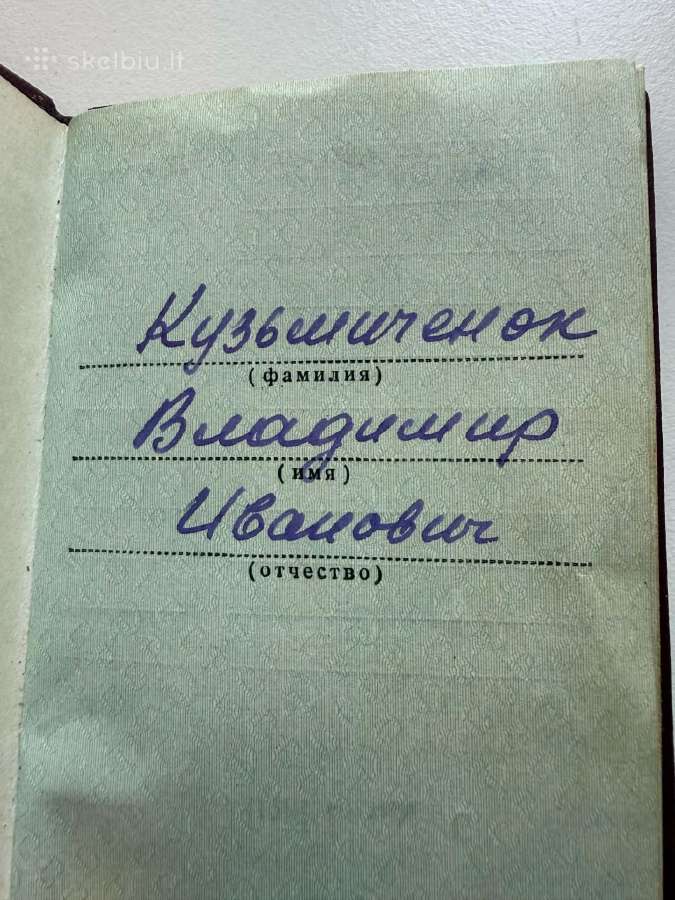 skelbiu.lt
Кузьмиченок
(фамилия)
Владимир
(имя)
Иванович
(отчество)